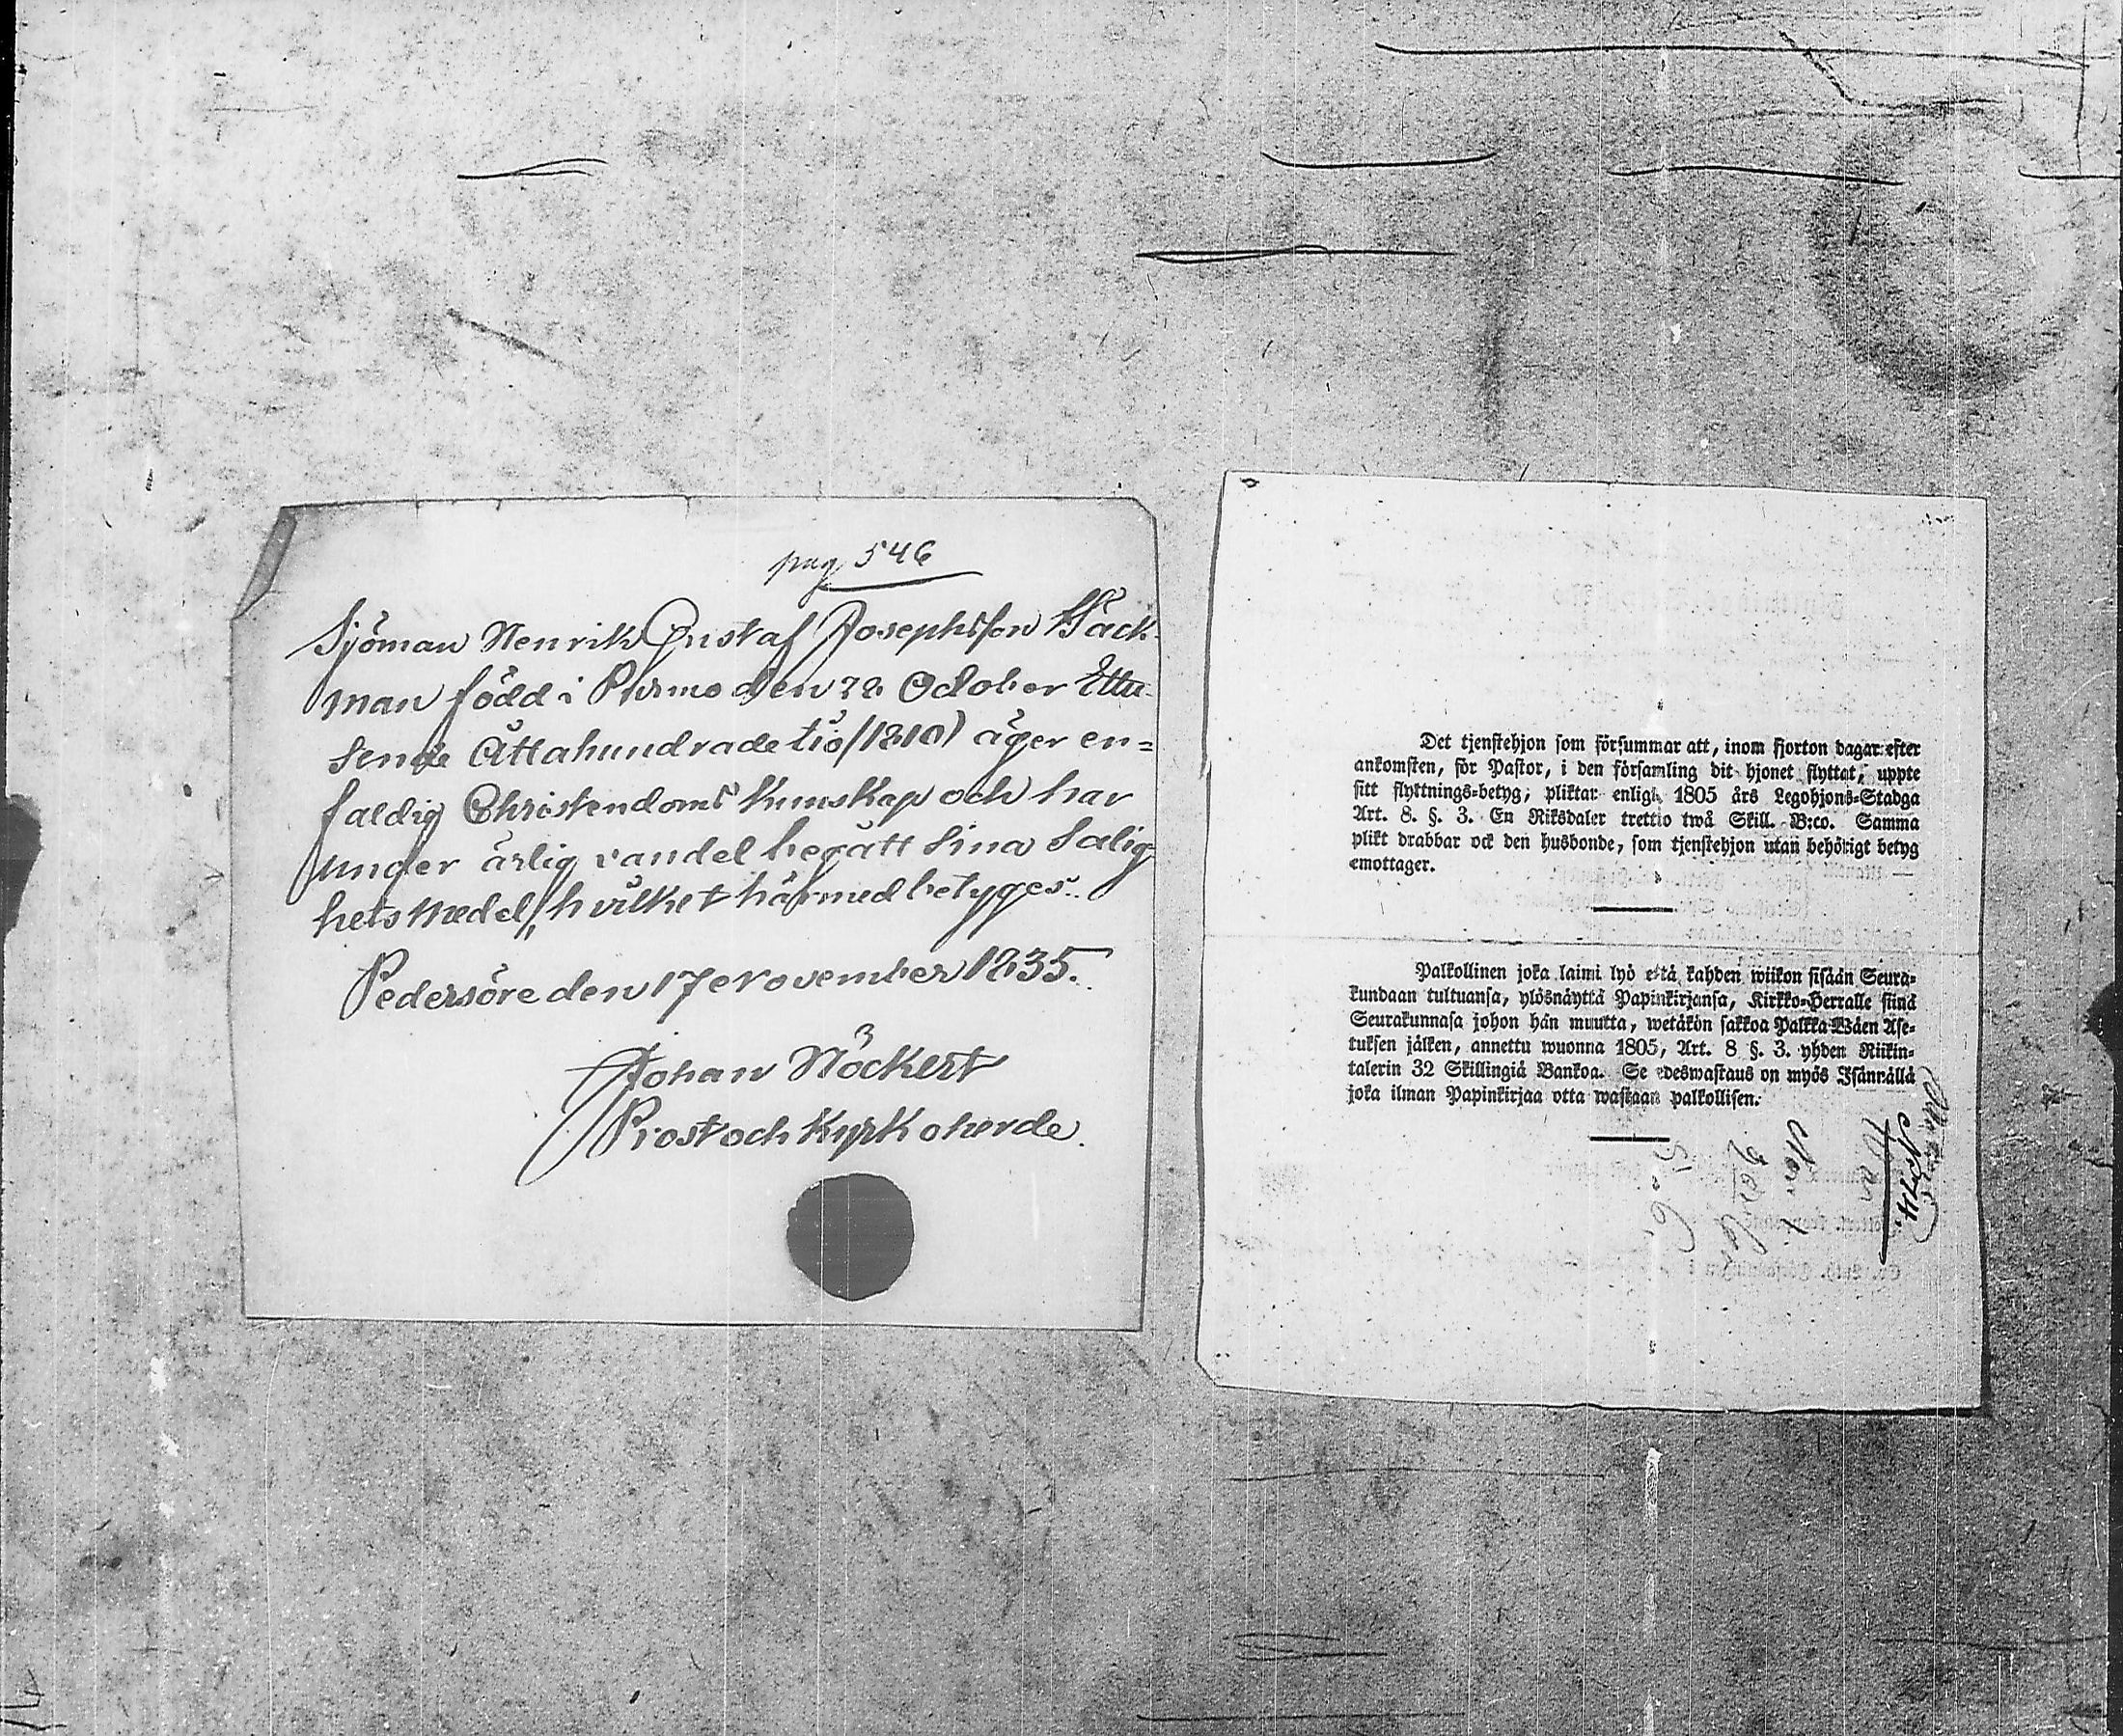 pag 546
Sjöman Henrik Gustaf Josephsson Bäck-
man född i Purmo den 22 October Ettu-
sende Åttahundrade tio (1810) äger en=
faldig Christendoms Kunskap och har
under ärlig vandel begått Sina Salig-
hets Medel, hvilket härmed betyges.
Pedersöre den 17 November 1835.
Johan Höckert
Prost och Kyrkoherde.
Det tjenstehjon som försummar att, inom fjorton dagar efter
ankomsten, för Pastor, i den församling dit hjonet flyttat, uppte
sitt flyttnings=betyg, pliktar enligt 1805 års Legohjons=Stadga
Art. 8. §. 3. En Riksdaler trettio twå Skill. B:co. Samma
plikt drabbar ock den husbonde, som tjenstehjon utan behörigt betyg
emottager.
Palkollinen joka laimi lyö että kahden wiikon sisään Seura=
kundaan tultuansa, ylösnäyttä Papinkirjansa, Kirkko=Herralle siinä
Seurakunnasa johon hän muutta, wetäkön sakkoa Palkka Wäen Ase=
tuksen jälken, annettu wuonna 1805, Art. 8 §. 3. yhden Riikin=
talerin 32 Skillingiä Bankoa. Se edeswastaus on myös Isännällä
joka ilman Papinkirjaa otta wastaan palkollisen.